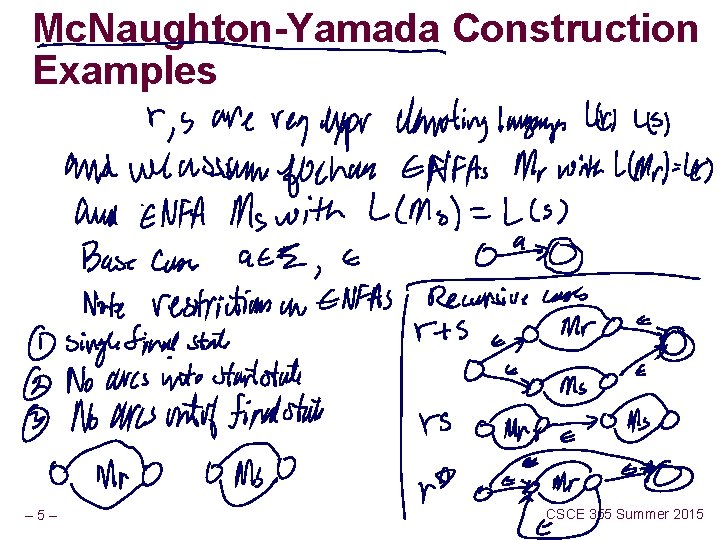 Mc.Naughton-Yamada Construction
Examples
r,s are reg expr denoting languages L(r) L(s)
and we assume to have ENFAs Mr with L(Mr)=L(r)
and ENFA Ms with L(Ms) = L(s)
Base Case a∈Σ, ε
a
Note restrictions on ENFAs
① single final state
② No arcs into start state
③ No arcs out of final state
Mr Ms
Recursive cases
r+s
ε Mr ε
ε Ms ε
rs Mr ε Ms
r*
ε
ε Mr ε
ε
– 5 –
CSCE 355 Summer 2015